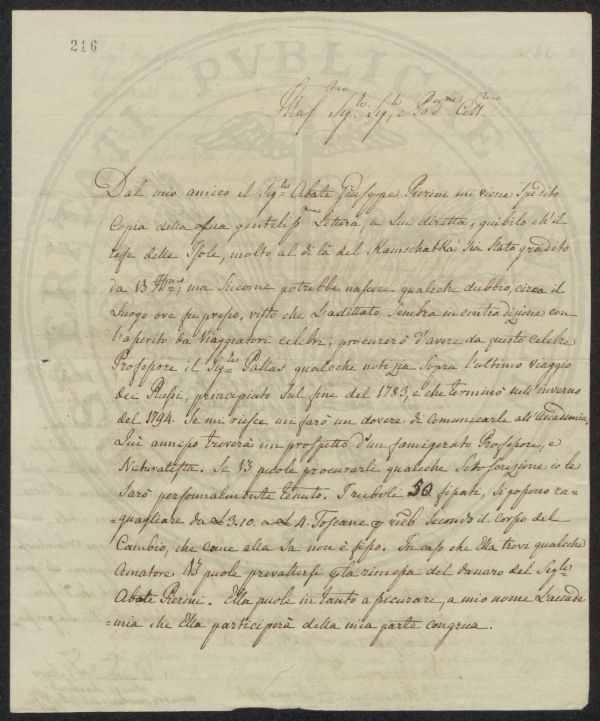 216
Dal mio amico il Sig:re Abate Giuseppe Pierini mi viene spedito
Copia della sua gentiliss:ma Lettera, a Lui diretta, quibilo ch'il
delle Isole, molto al di là del Kamschatka sia Stato gradito
da VS Ill:ma; ma Siccome potrebbe nascere qualche dubbio, circa il
Luogo ove fu preso, visto che L'additato Sembra in contradizione con
l'aperito da Viaggiatori celebri, procurerò d'avere da questo celebre
Professore il Sig:re Pallas qualche notizia Sopra l'ultimo viaggio
dei Russi, principiato Sul fine del 1783, e che terminò nell'inverno
del 1794. Se mi riesce mi farò un dovere di comunicarle all'Accademia,
Quì annesso troverà un prospetto d'un famigerato Professore, e
Naturalista. Se VS puole procurarli qualche Sotoscrizione io le
Sarò personalmente tenuto. I ruboli 50 fissati, si possono ra=
=guagliare da £ 3.10. a £ 4. Toscane Secondo il Corso del
Cambio, che come ella Sa non è fisso. In caso che Ella trovi qualche
Amatore VS puole prevalersi la rimessa del danaro del Sig:re
Abate Pierini. Ella puole in tanto assicurare, a mio nome L'accade
=mia che Ella participerà della mia parte congrua.